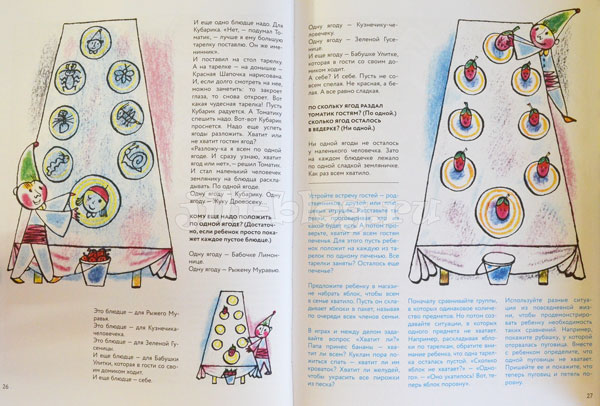 И еще одно блюдце надо. Для
Кубарика. «Нет, – подумал То-
матик, – лучше я ему большую
тарелку поставлю. Он же име-
нинник».
И поставил на стол тарелку.
А на тарелке – на донышке –
Красная Шапочка нарисована.
И, если долго смотреть на нее,
можно заметить: то закроет
глаза, то снова откроет. Вот
какая чудесная тарелка! Пусть
Кубарик радуется. А Томатику
спешить надо. Вот-вот Кубарик
проснется. Надо еще успеть
ягоды разложить. Хватит или
не хватит гостям ягод?
«Разложу-ка я всем по одной
ягоде. И сразу узнаю, хватит
ягод или нет», – решил Томатик.
И стал маленький человечек
землянику на блюдца расклa-
дывать. По одной ягоде.
Одну ягоду – Кубарику. Одну
ягоду – Жуку Дровосеку...
КОМУ ЕЩЕ НАДО ПОЛОЖИТЬ
ПО ОДНОЙ ЯГОДЕ? (Достаточ-
но, если ребенок просто пока-
жет каждое пустое блюдце.)
Одну ягоду – Бабочке Лимон-
нице.
Одну ягоду – Рыжему Муравью.
Это блюдце – для Рыжего Му-
равья.
Это блюдце – для Кузнечика-
человечека.
Это блюдце – для Зеленой Гусе-
ницы.
И еще блюдце – для Бабушки
Улитки, которая в гости со сво-
им домиком ходит.
И еще блюдце – себе.
26
Одну ягоду – Кузнечику-че-
ловечеку.
Одну ягоду – Зеленой Гусе-
нице.
И еще ягоду – Бабушке Улитке,
которая в гости со своим до-
миком ходит.
А себе? И себе. Пусть не со-
всем спелая. Не красная, а бе-
лая. А все равно сладкая.
ПО СКОЛЬКУ ЯГОД РАЗДАЛ
ТОМАТИК ГОСТЯМ? (По одной.)
СКОЛЬКО ЯГОД ОСТАЛОСЬ
В ВЕДЕРКЕ? (Ни одной.)
Ни одной ягоды не осталось
у маленького человечка. Зато
на каждом блюдечке лежало
по одной сладкой землянички.
Как раз всем хватило.
Устройте встречу гостей –
игрушек. Расставьте
проверьте, хватит ли всем гостям
печенья. Для этого пусть ребе-
нок положит на каждую из таре-
лок по одному печенью. Все
тарелки заняты? Осталось еще
печенье?
Предложите ребенку в магази-
не набрать яблок, чтобы всем
в семье хватило. Пусть он скла-
дывает яблоки в пакет, называя
по очереди всех членов семьи.
В играх и между делом зада-
вайте вопрос: «Хватит ли?»
Папа принес бананы – хва-
тит ли всем? Куклам пора ло-
житься спать – хватит ли им
кроваток? Хватит ли желудей,
чтобы украсить все пирожки
из песка?
Поначалу сравнивайте группы,
в которых одинаковое количе-
ство предметов. Но потом соз-
давайте ситуации, в которых
одного предмета не хватает.
Например, раскладывая ябло-
ки по тарелкам, обратите вни-
мание ребенка, что одна тарел-
ка осталась пустой. «Сколько
яблок не хватает?» – «Одно-
го» – «Оно укатилось! Вот, те-
перь яблок поровну».
Используйте разные ситуа-
ции из повседневной жизни,
чтобы продемонстриро-
вать ребенку необходимость
таких сравнений. Например,
покажите рубашку, у которой
оторвалась пуговица. Вместе
с ребенком определите, что
одной пуговицы не хватает.
Пришейте ее и покажите, что
теперь пуговиц и петель по-
ровну.
27